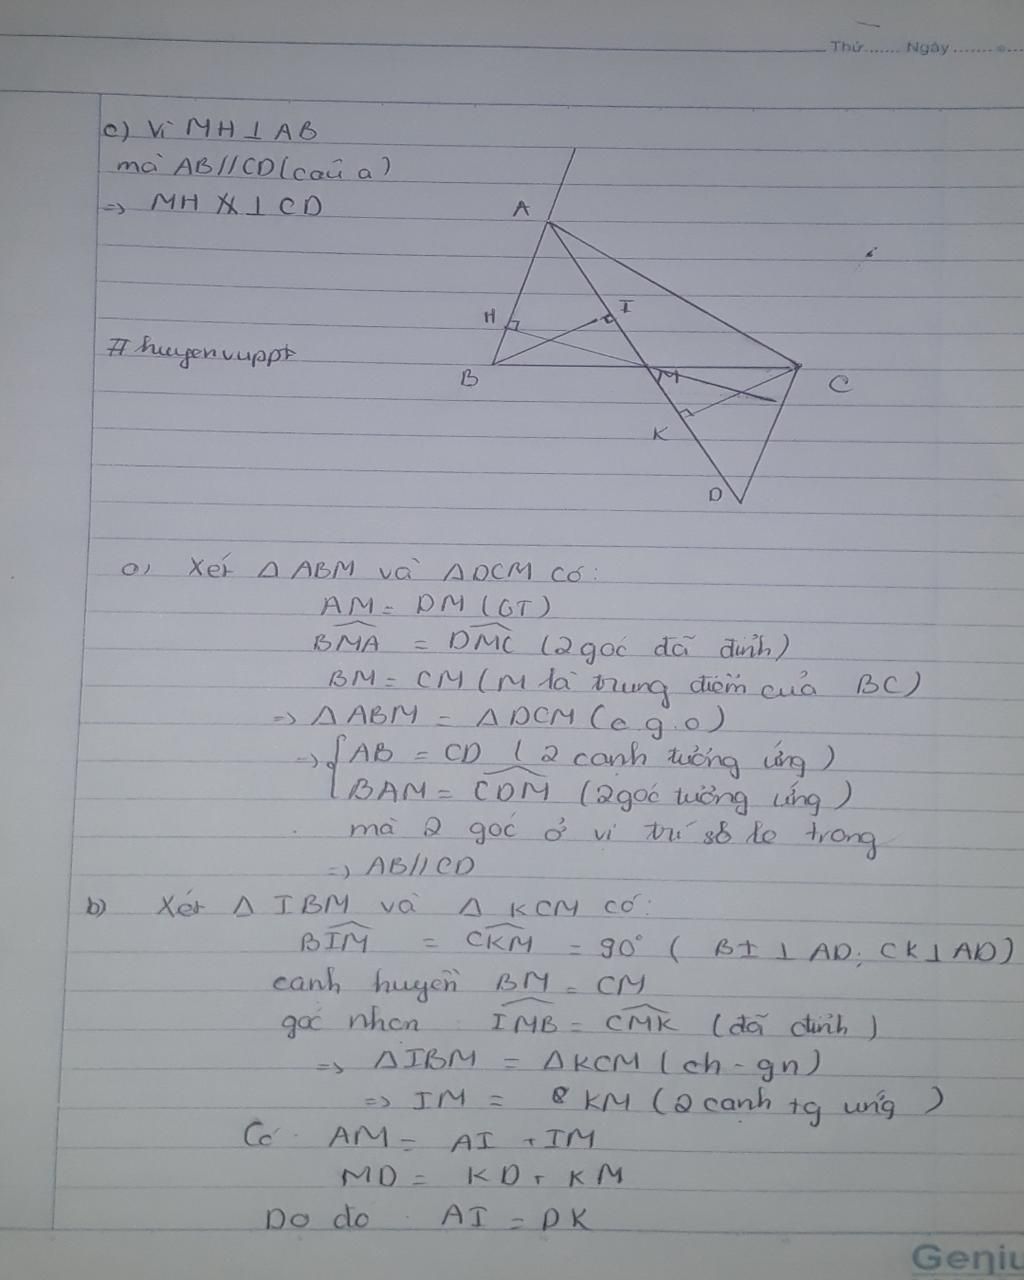 Thứ....... Ngày...........
c) Vì MH ⊥ AB
mà AB // CD (câu a)
=> MH ⊥ CD
#huyenvuppt
A
H
I
B
M
C
K
D
a, Xét Δ ABM và Δ DCM có:
AM = DM (GT)
BMA = DMC (2 góc đã đỉnh)
BM = CM (M là trung điểm của BC)
=> Δ ABM = Δ DCM (c.g.c)
=> { AB = CD (2 cạnh tưởng ứng)
BAM = CDM (2 góc tưởng ứng)
mà 2 góc ở vi trí sô le trong
=> AB // CD
b) Xét Δ IBM và Δ KCM có:
BIM = CKM = 90° ( BI ⊥ AD; CK ⊥ AD)
cạnh huyền BM = CM
góc nhọn IMB = CMK (đã đỉnh)
=> Δ IBM = Δ KCM (ch - gn)
=> IM = KM (2 cạnh tg ưng)
Có. AM = AI + IM
MD = KD + KM
Do đo AI = DK
Geniu